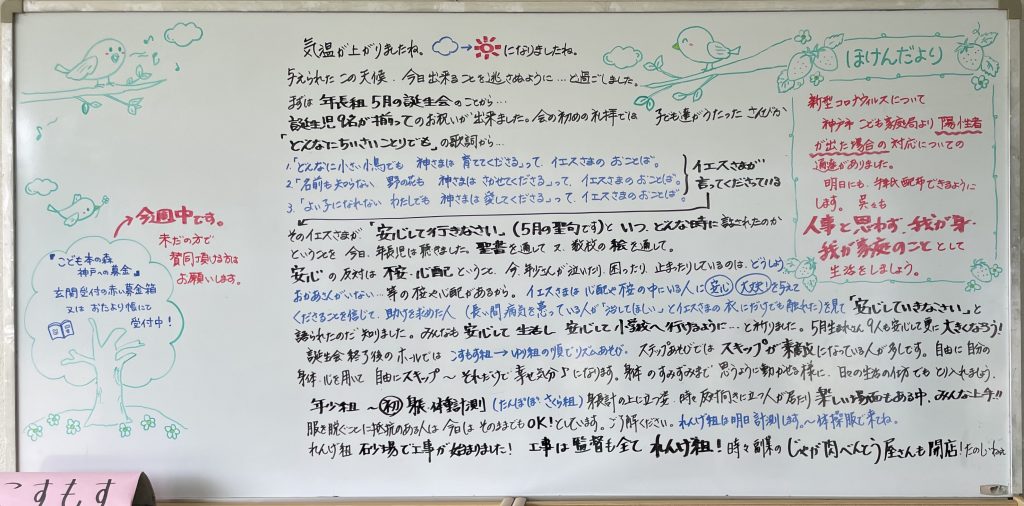 気温が上がりましたね。 → になりましたね。
与えられたこの天候、今日出来ることを逃さぬように…と過ごしました。
まずは 年長組 5月の誕生会のことから…
誕生児9名が揃ってのお祝いが出来ました。会の初めの礼拝では 子ども達がうたった さんびか
「どんなにちいさいことりでも」の歌詞から…
1.「どんなに小さい小鳥でも 神さまは 育ててくださる」って、イエスさまの おことば。
2.「名前も知らない 野の花も 神さまは さかせてくださる」って、イエスさまの おことば。
3.「よい子になれない わたしでも 神さまは 愛してくださる」って、イエスさまの おことば。
イエスさまが
言ってくださっている
そのイエスさまが「安心して行きなさい」(5月の聖句です)と いつ、どんな時に 話されたのか
ということを 今日、年長児は聴きました。聖書を通して 又、数枚の 絵を通して。
安心 の反対は 不安・心配 ということ、今、年少さんが泣いたり、困ったり、止まったりしているのは、どうしよう
おかあさんがいない…等の 不安や心配があるから。イエスさまは 心配や不安の中にいる人に 安心 大丈夫 を与えて
くださることを信じて、助けを求めた人 (長い間 病気を患っている人が「治してほしい」とイエスさまの衣にだけでも触れた)を見て「安心していきなさい」と
語られたのだ 知りました。みんなも 安心して 生活し 安心して 小学校へ 行けるように…と祈りました。5月生まれさん 9人も 安心して 更に 大きくなろう!
誕生会 終了後の ホールでは こすもす組→ゆり組の順でリズムあそび。ステップあそびでは スキップが 素敵になっている人が 多しです。自由に 自分の
身体・心を用いて 自由にスキップ〜 それだけで 幸せ気分♪になります。身体 のすみずみまで 思うように 動かせる様に、日々の生活の仕方でもとり入れましょう。
年少組〜初 身長・体重計測 (たんぽぽ・さくら組) 身長計の上に立つ姿、時々 反対向きに立つ人が居たり 楽しい場面もある中、みんな上手!!
服を脱ぐことに抵抗のある人は 今日は そのままでも OK!としています。ご了解ください。れんげ組は明日 計測します。〜体操服で来てね。
れんげ組 石少場で工事が始まりました! 工事は監督も全て れんげ組! 時々副業の じゃが肉べんとう屋さんも開店! たのしいわぁ
ほけんだより
新型コロナウィルスについて
神戸市 こども家庭局より 陽性者
が出た場合の 対応についての
通達がありました。
明日にも、お手紙配布できるように
します。呉々も
人事と思わず、我が身・
我が家庭のこととして
生活をしましょう。
今週中です。
未だの方で
賛同頂ける方は
お願いします。
「こども本の森
神戸への募金」
玄関受付の赤い募金箱
又は おたより帳にて
受付中!
こすもす